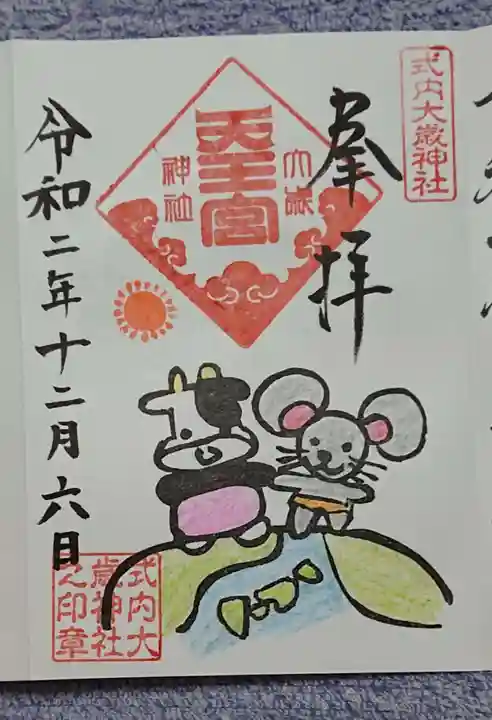 式内大歳神社
奉拝
大歳
天王宮
神社
令和二年十二月六日
式内大
歳神社
之印章